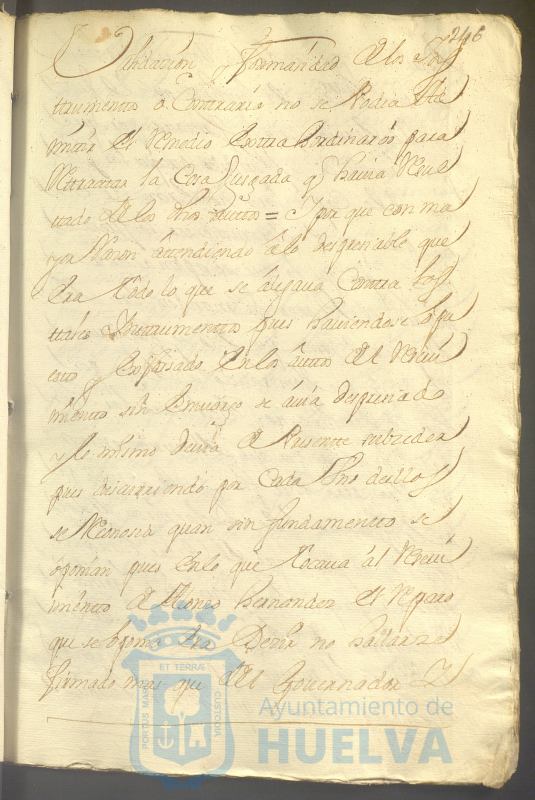 246
Fundacion y formalidad de los Ins
trumentos o Contrario no se Podia Ad
mitir el Remedio Extra hordinario para
Retratar la Cosa Juzgada q havia Resul
tado de los dhos autos = Y por que con ma
yor Razon atendiendo a lo despreciable que
Era todo lo que se alegava Contra los
tales Instrumentos pues haviendose opu
esto y Expresado En los autos del Recivi
miento sin Emvargo se avia despreciado
y lo mismo devia de Presente subceder
pues discurriendo por Cada Uno de ellos
se Reconocia quan sin fundamento se
oponian pues En lo que tocava al Recivi
miento de Alonso Hernandez el Reparo
que se oponia Era Decir no hallarse
firmado mas que del Governador Y
PORTUS MARIS
ET TERRÆ
CUSTODIA
Ayuntamiento de
HUELVA